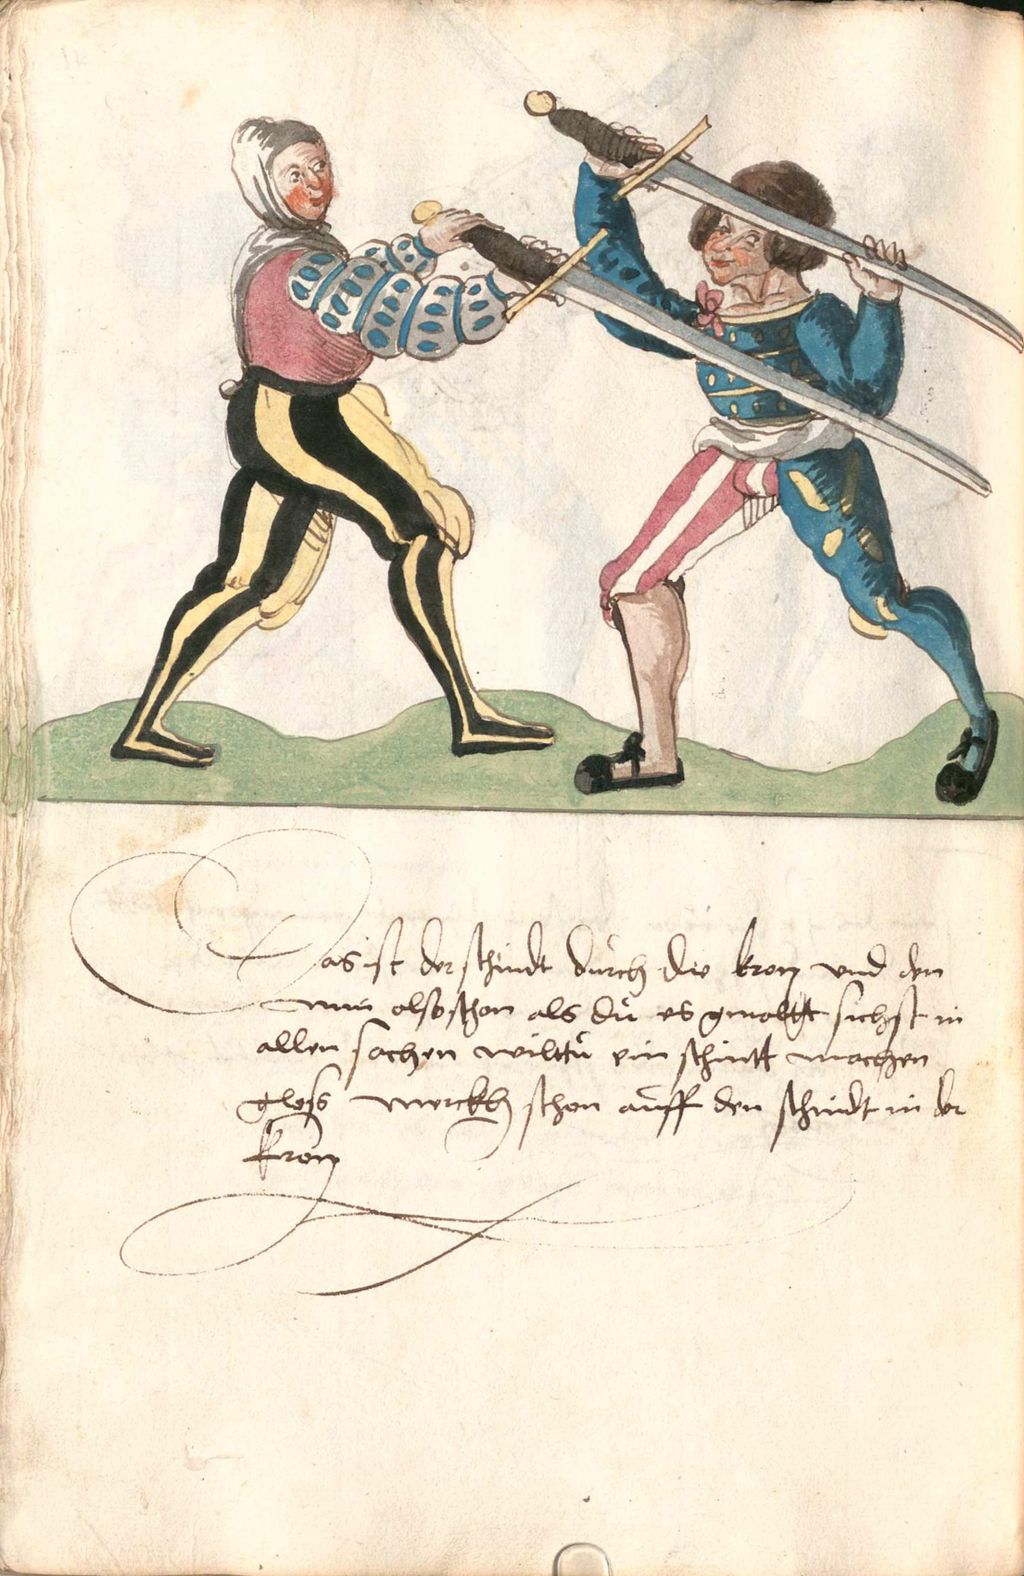 Das ist der schindt dürch die kron vnd den
nim also schon als dü es gmoltt sichst in
allen sachen wilttü ein schintt machen
gloss merckh schon aüff den schindt in der
kron